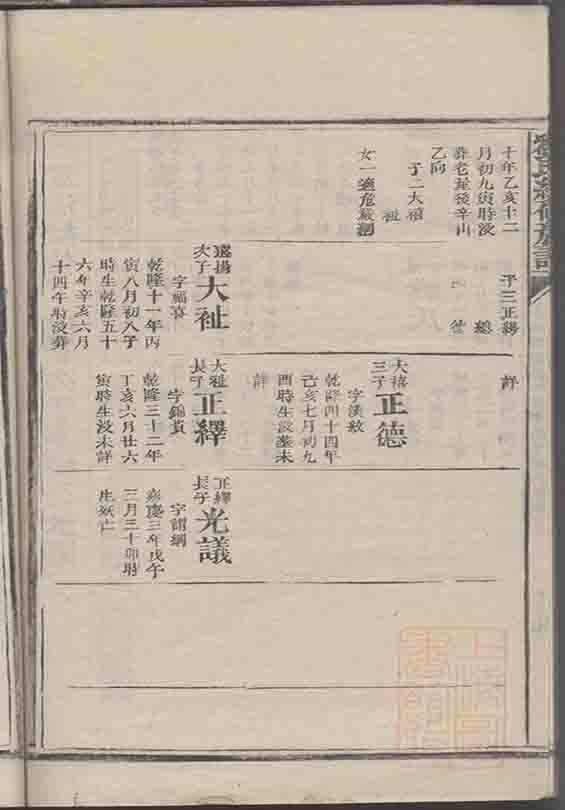 十年乙亥十二
月初九寅時没
葬老屋後辛山
乙向
子二大禧
祉
女一適危
子三正繹
總
德
遠揚
次子
大祉
字福喜
乾隆十一年丙
寅八月初八子
時生乾隆五十
六年辛亥六月
十四午時没葬
詳
大禧
三子
正德
字漢敘
乾隆四十四年
己亥七月初九
酉時生没葬未
詳
大祉
長子
正繹
字錦貴
乾隆三十二年
丁亥六月廿六
寅時生没未詳
正繹
長子
光議
字謂綱
嘉慶三年戊午
三月三十卯時
生殀亡